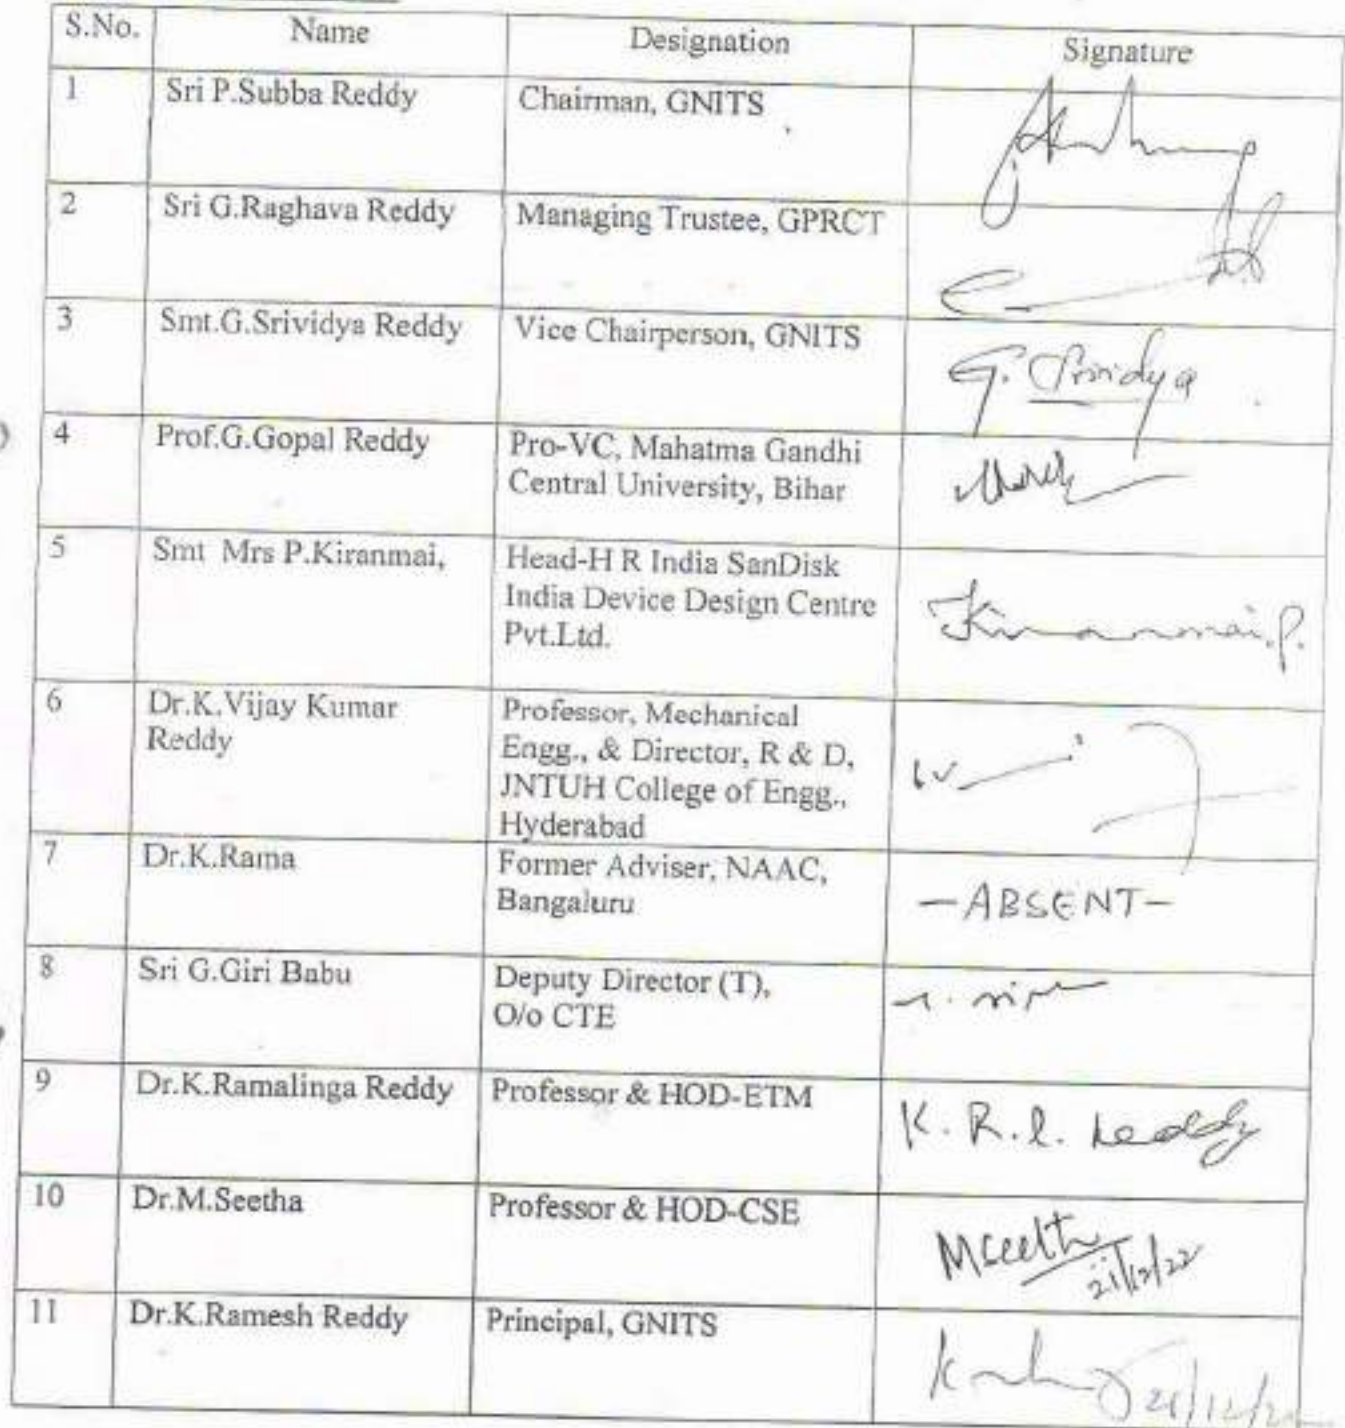 S.No. Name Designation Signature
1 Sri P.Subba Reddy Chairman, GNITS
2 Sri G.Raghava Reddy Managing Trustee, GPRCT
3 Smt.G.Srividya Reddy Vice Chairperson, GNITS G. Srividya
4 Prof.G.Gopal Reddy Pro-VC, Mahatma Gandhi
Central University, Bihar
5 Smt Mrs P.Kiranmai, Head-H R India SanDisk
India Device Design Centre Kiranmai.P.
Pvt.Ltd.
6 Dr.K.Vijay Kumar Professor, Mechanical
Reddy Engg., & Director, R & D,
JNTUH College of Engg.,
Hyderabad
7 Dr.K.Rama Former Adviser, NAAC,
Bangaluru -ABSENT-
8 Sri G.Giri Babu Deputy Director (T),
O/o CTE
9 Dr.K.Ramalinga Reddy Professor & HOD-ETM K. R. l. Reddy
10 Dr.M.Seetha Professor & HOD-CSE MSeetha
21/12/22
11 Dr.K.Ramesh Reddy Principal, GNITS